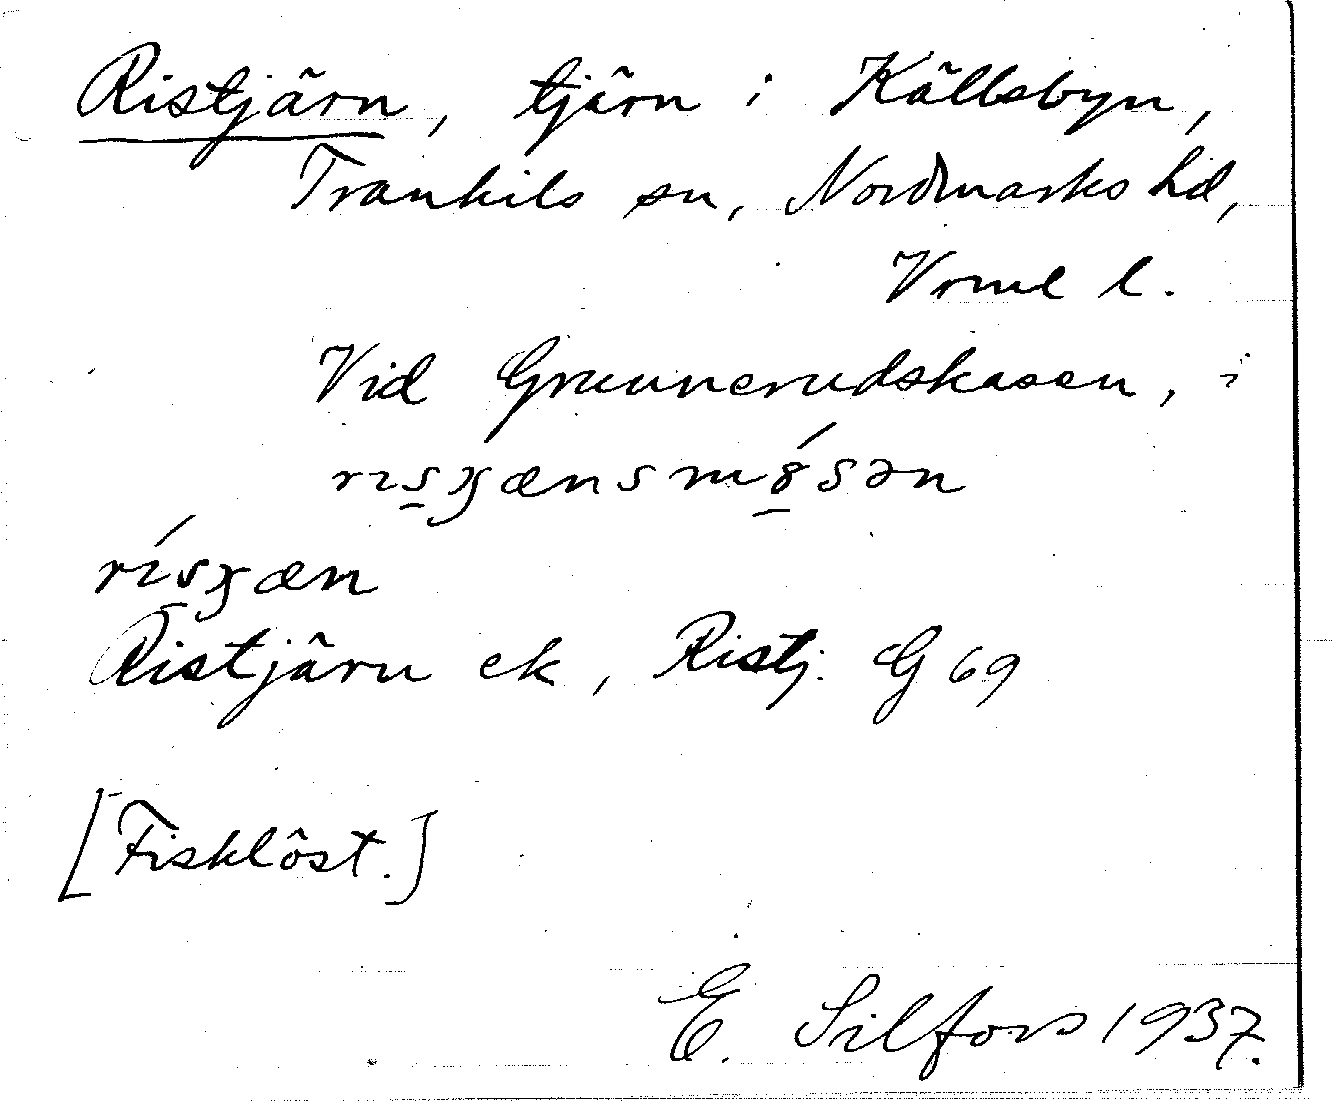 Ristjärn, tjärn i Källsbyn,
Trankils sn, Nordmarks hd,
Vrml l.
Vid Grunnerudskasen, i
rɩsɧænsmósən
rɩ́sɧæn
Ristjärn ek, Ristj. G 69
[Fisklöst.]
E. Silfors 1937.